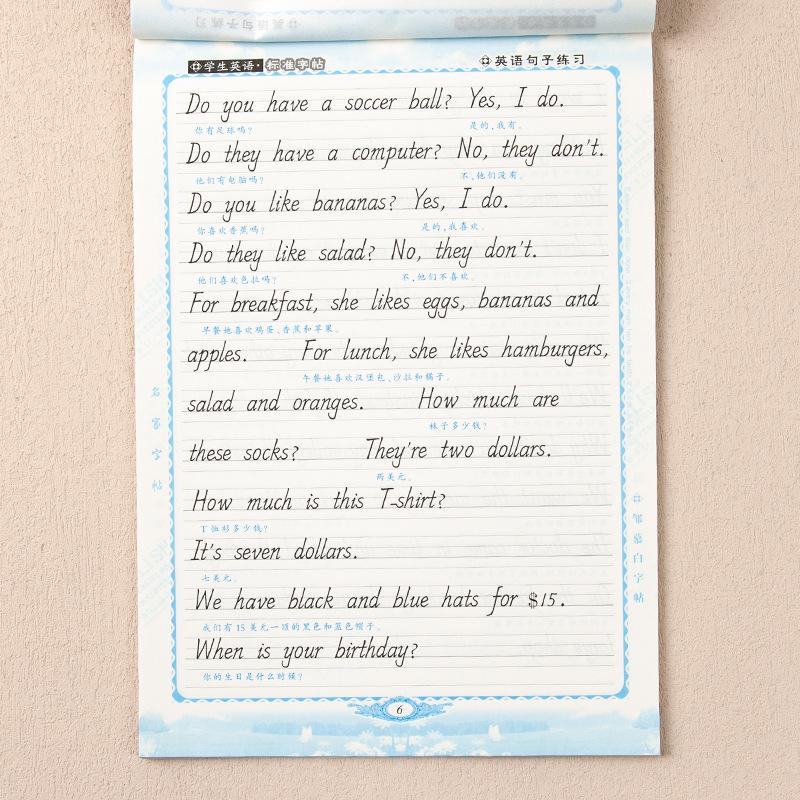 学生英语·标准字帖 英语句子练习
Do you have a soccer ball? Yes, I do.
你有足球吗? 是的,我有。
Do they have a computer? No, they don't.
他们有电脑吗? 不,他们没有。
Do you like bananas? Yes, I do.
你喜欢香蕉吗? 是的,我喜欢。
Do they like salad? No, they don't.
他们喜欢色拉吗? 不,他们不喜欢。
For breakfast, she likes eggs, bananas and
早餐她喜欢鸡蛋、香蕉和苹果。
apples. For lunch, she likes hamburgers,
午餐她喜欢汉堡包、沙拉和橘子。
salad and oranges. How much are
袜子多少钱?
these socks? They're two dollars.
两美元。
How much is this T-shirt?
T恤衫多少钱?
It's seven dollars.
七美元。
We have black and blue hats for $15.
我们有15美元一顶的黑色和蓝色帽子。
When is your birthday?
你的生日是什么时候?
名家字帖
邹慕白字帖
6